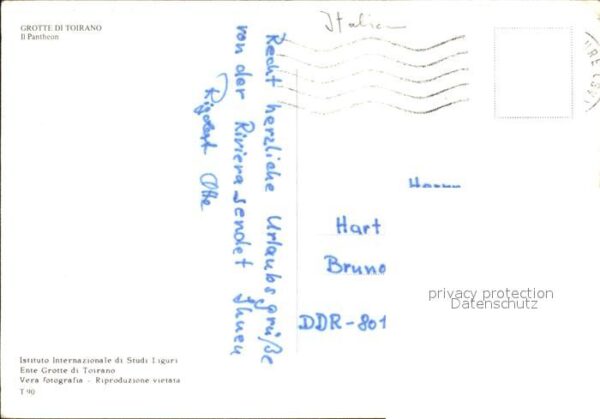 GROTTE DI TOIRANO
Il Pantheon
Italien
Recht herzliche Urlaubsgrüße
von der Riviera sendet Ihnen
Otte
Hart
Bruno
DDR-801
privacy protection
Datenschutz
Istituto Internazionale di Studi Liguri
Ente Grotte di Toirano
Vera fotografia - Riproduzione vietata
T 90